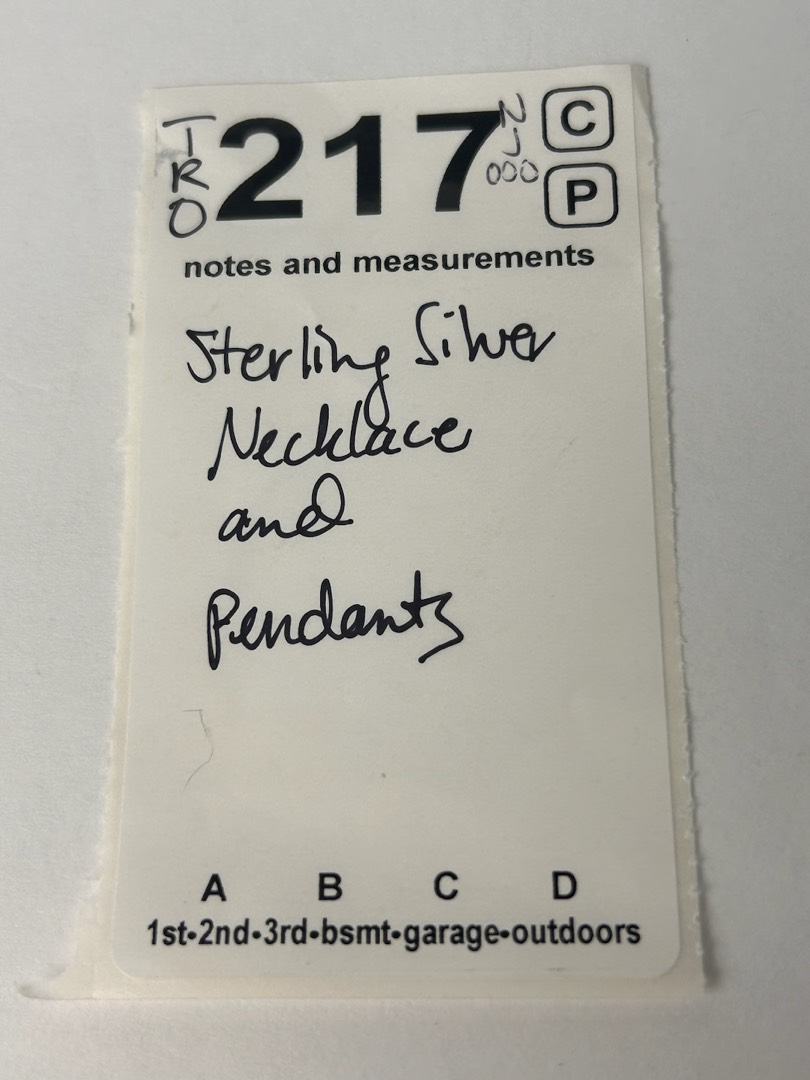 TRO 217 NJ 000 C
P
notes and measurements
Sterling Silver
Necklace
and
Pendants
A B C D
1st•2nd•3rd•bsmt•garage•outdoors